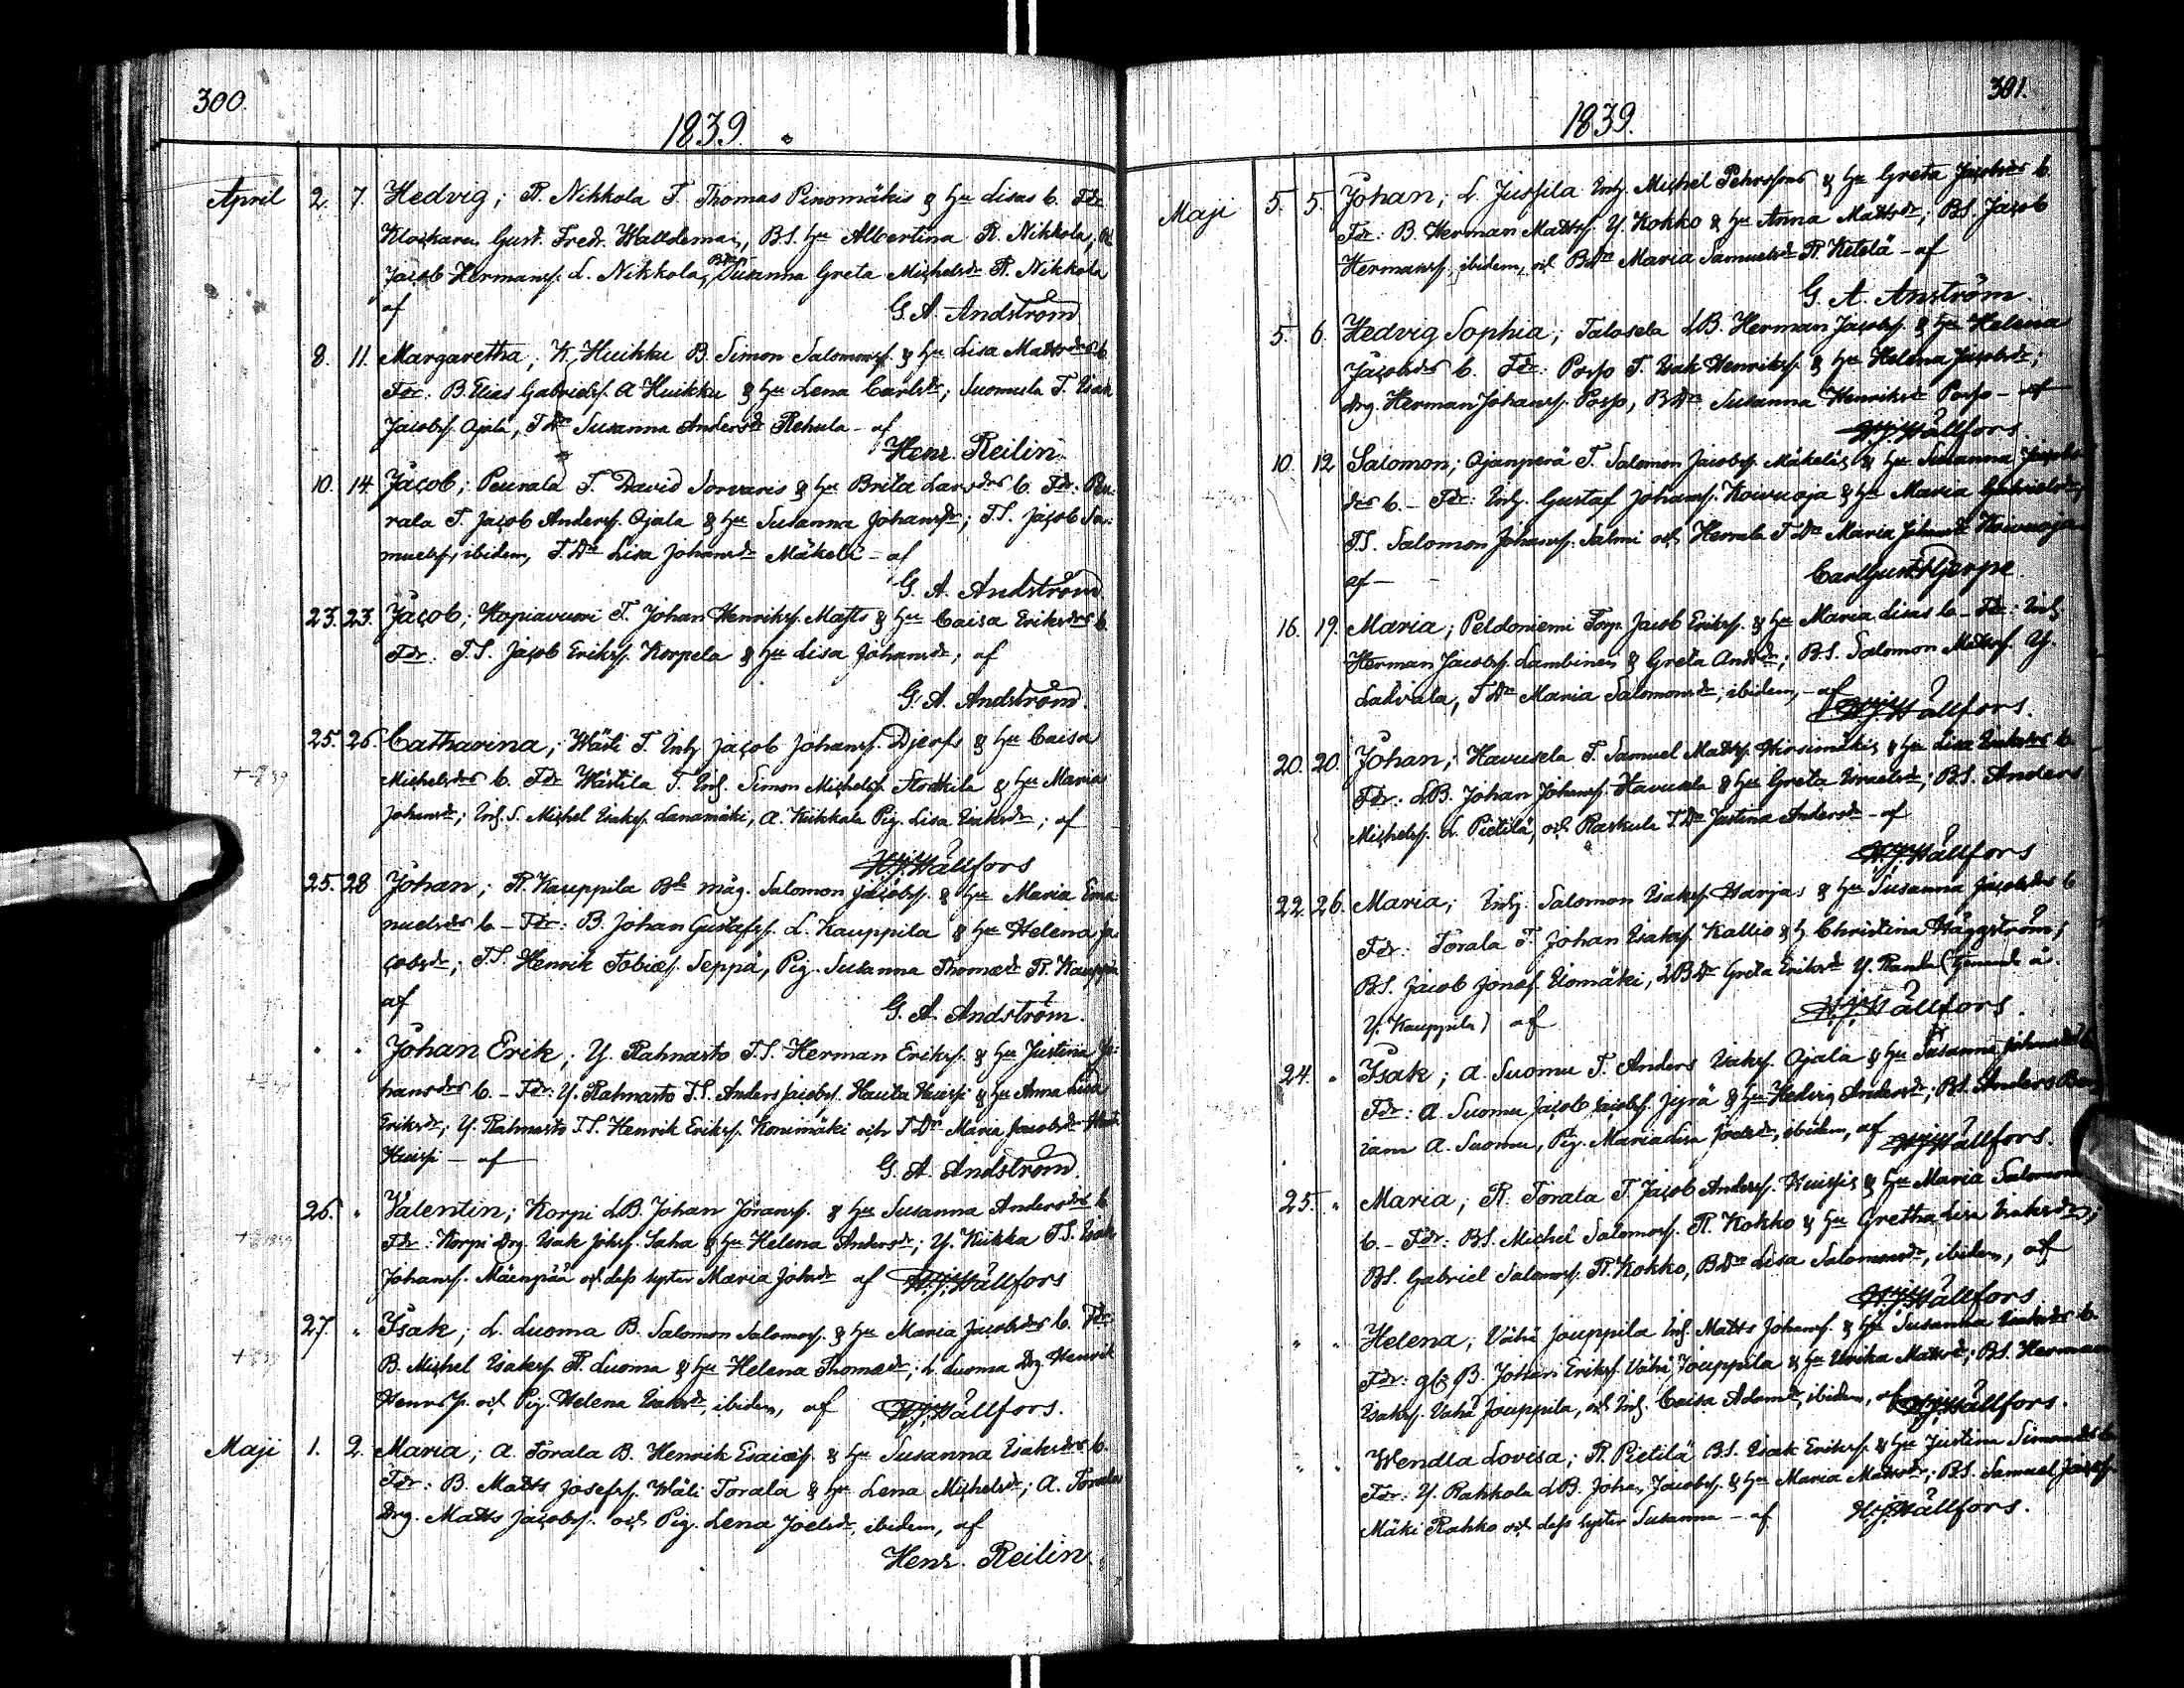 300.
1839.
April 2. 7. Hedvig; R. Nikkola T. Thomas Pinomäkis & hu Lisas b. Fdr
Klockaren Gust. Fredr. Walldeman, B.S. hu Albertina R. Nikkola,
Jacob Hermansf. L. Nikkola, BDr Susanna Greta Michelsdr R. Nikkola
af G. A. Andström
8. 11. Margaretha; K. Huikku B. Simon Salomonsf. & hu Lisa Mattsdrs b.
Fdr: B. Elias Gabrielsf. A Huikku & hu Lena Carlsdr; Suomela T. Isak
Jacobsf. Ojala, TDr Susanna Andersdr Rehula - af
Henr. Reilin.
10. 14 Jacob; Peurala T. David Sorvaris & hu Brita Larsdrs b. Fdr: Peu-
rala T. Jacob Andersf. Ojala & hu Susanna Johansdr; T.S. Jacob Sa-
muelsf, ibidem, T.Dr Lisa Johansdr Mäkelä - af
G. A. Andström
23. 23. Jacob; Hopiavuori T. Johan Henriksf. Matts & hu Caisa Eriksdrs b.
Fdr: T.S. Jacob Eriksf. Korpela & hu Lisa Johansdr; af
G. A. Andström.
25. 26. Catharina; Wäli T. Inh. Jacob Johansf. Djerfs & hu Caisa
Michelsdrs b. Fdr Wästila T. Inh. Simon Michelsf. & hu Maria
Johansdr; Inh. S. Michel Isaksf. Lanamäki, A. Kiikkala Pig. Lisa Isaksdr; af
H.J. Wållfors
25. 28 Johan; R. Kauppila Bds måg. Salomon Jacobsf. & hu Maria Ema-
nuelsdrs b. - Fdr: B. Johan Gustafsf. L. Kauppila & hu Helena Ja-
cobsdr; T.S. Henrik Tobiæsf. Seppä, Pig. Susanna Thomædr R. Kauppila
af G. A. Andström.
" " Johan Erik; Y. Rahnasto T.S. Herman Eriksf. & hu Justina Jo-
hansdrs b. - Fdr: Y. Rahnasto T.S. Anders Jacobsf. Hauta Huissi & hu Anna Lisa
Eriksdr; Y. Rahnasto T.S. Henrik Eriksf. Konimäki och TDr Maria Jacobsdr Hauta
Huissi - af G. A. Andström.
26. " Valentin; Korpi LB. Johan Jöransf. & hu Susanna Andersdrs b
Fdr: Korpi Drg. Isak Johsf. Saha & hu Helena Andersdr; Y. Kiikka T.S. Isak
Johansf. Mäenpää och dess syster Maria Johsdr af H.J. Wållfors
27. " Isak; L. Luoma B. Salomon Salomonsf. & hu Maria Jacobsdrs b. Fdr:
B. Michel Isaksf. R. Luoma & hu Helena Thomædr; L. Luoma Drg Henrik
Henrsf. och Pig. Helena Isaksdr, ibidem, af H.J. Wållfors.
Maji 1. 2. Maria; A. Torala B. Henrik Esaiæsf. & hu Susanna Isaksdrs b.
Fdr: B. Matts Josefsf. Wäli Torala & hu Lena Michelsdr; A. Torala
Drg. Matts Jacobsf. och Pig. Lena Joelsdr, ibidem, af
Henr. Reilin
301.
1839.
Maji 5. 5. Johan; L. Jussila Inh. Michel Pehrssons & hu Greta Jacobsdrs b.
Fdr: B. Herman Mattsf. Y. Kokko & hu Anna Mattsdr; BS. Jacob
Hermansf, ibidem, och BDr Maria Samuelsdr R. Ketelä - af
G. A. Anström.
5. 6. Hedvig Sophia; Talosela LB. Herman Jacobsf. & hu Helena
Jacobsdrs b. Fdr: Porso T. Isak Henriksf. & hu Helena Jacobsdr;
Drg. Herman Johansf. Porso, BDr Susanna Henriksdr Porso - af
H.J. Wållfors.
10. 12 Salomon; Ojanperä T. Salomon Jacobsf. Mäkeläs & hu Susanna Jacobs-
drs b. - Fdr: Inh. Gustaf Johansf. Koivuoja & hu Maria Gabrielsdr;
T.S. Salomon Johansf. Salmi och Herrala TDr Maria Johansdr Koivuoja
af - Carl Gust. Hjerpe.
16. 19. Maria; Peldoniemi Torp. Jacob Eriksf. & hu Maria Lisas b - Fdr: Inh.
Herman Jacobsf. Lambinen & Greta Andsdr; B.S. Salomon Mattsf. Y.
Ladvala, TDr Maria Salomonsdr, ibidem, - af
H.J. Wållfors.
20. 20. Johan; Havusela T. Samuel Mattsf. Hirsimäkis & hu Lisa Isaksdrs b.
Fdr: LB. Johan Johansf. Havusela & hu Greta Israelsdr; BS. Anders
Michelsf. L. Pietilä, och Raskula TDr Justina Andersdr - af
H.J. Wållfors
22. 26. Maria; Inh. Salomon Isaksf. Harjas & hu Susanna Jacobsdrs b
Fdr: Torala T. Johan Isaksf. Kallio & h. Christina Häggström;
BS. Jacob Jonæsf. Isomäki, LBDr Greta Eriksdr Y. Randa
Y. Kauppila) af H.J. Wållfors.
24. " Isak; A. Suomu T. Anders Isaksf. Ojala & hu Susanna Johansdrs b
Fdr: A. Suomu Jacob Jacobsf. Jyrä & hu Hedvig Andersdr; BS. Anders
A. Suomu, Pig. Maria Lisa Joelsdr, ibidem, af H.J. Wållfors.
25. " Maria; R. Torala T. Jacob Andersf. Huissis & hu Maria Salomons
b. - Fdr: BS. Michel Salomonsf. R. Kokko & hu Gretha Lisa Isaksdr;
BS. Gabriel Salomsf. R. Kokko, BDr Lisa Salomonsdr, ibidem, af
H.J. Wållfors
" " Helena; Vähä Jouppila Inh. Matts Johansf. & hu Susanna Isaksdrs b.
Fdr: B. Johan Eriksf. Vähä Jouppila & hu Ulrika Mattsdr; BS. Herman
Isaksf. Vähä Jouppila, och Inh. Caisa Adamsdr, ibidem, af H.J. Wållfors.
" " Wendla Lovisa; R. Pietilä BS. Isak Eriksf. & hu Justina Simonsdrs b
Fdr: Y. Rahkola LB. Johan Jacobsf. & hu Maria Mattsdr; BS. Samuel Jacobsf.
Mäki Rahko och dess syster Susanna - af H.J. Wållfors.